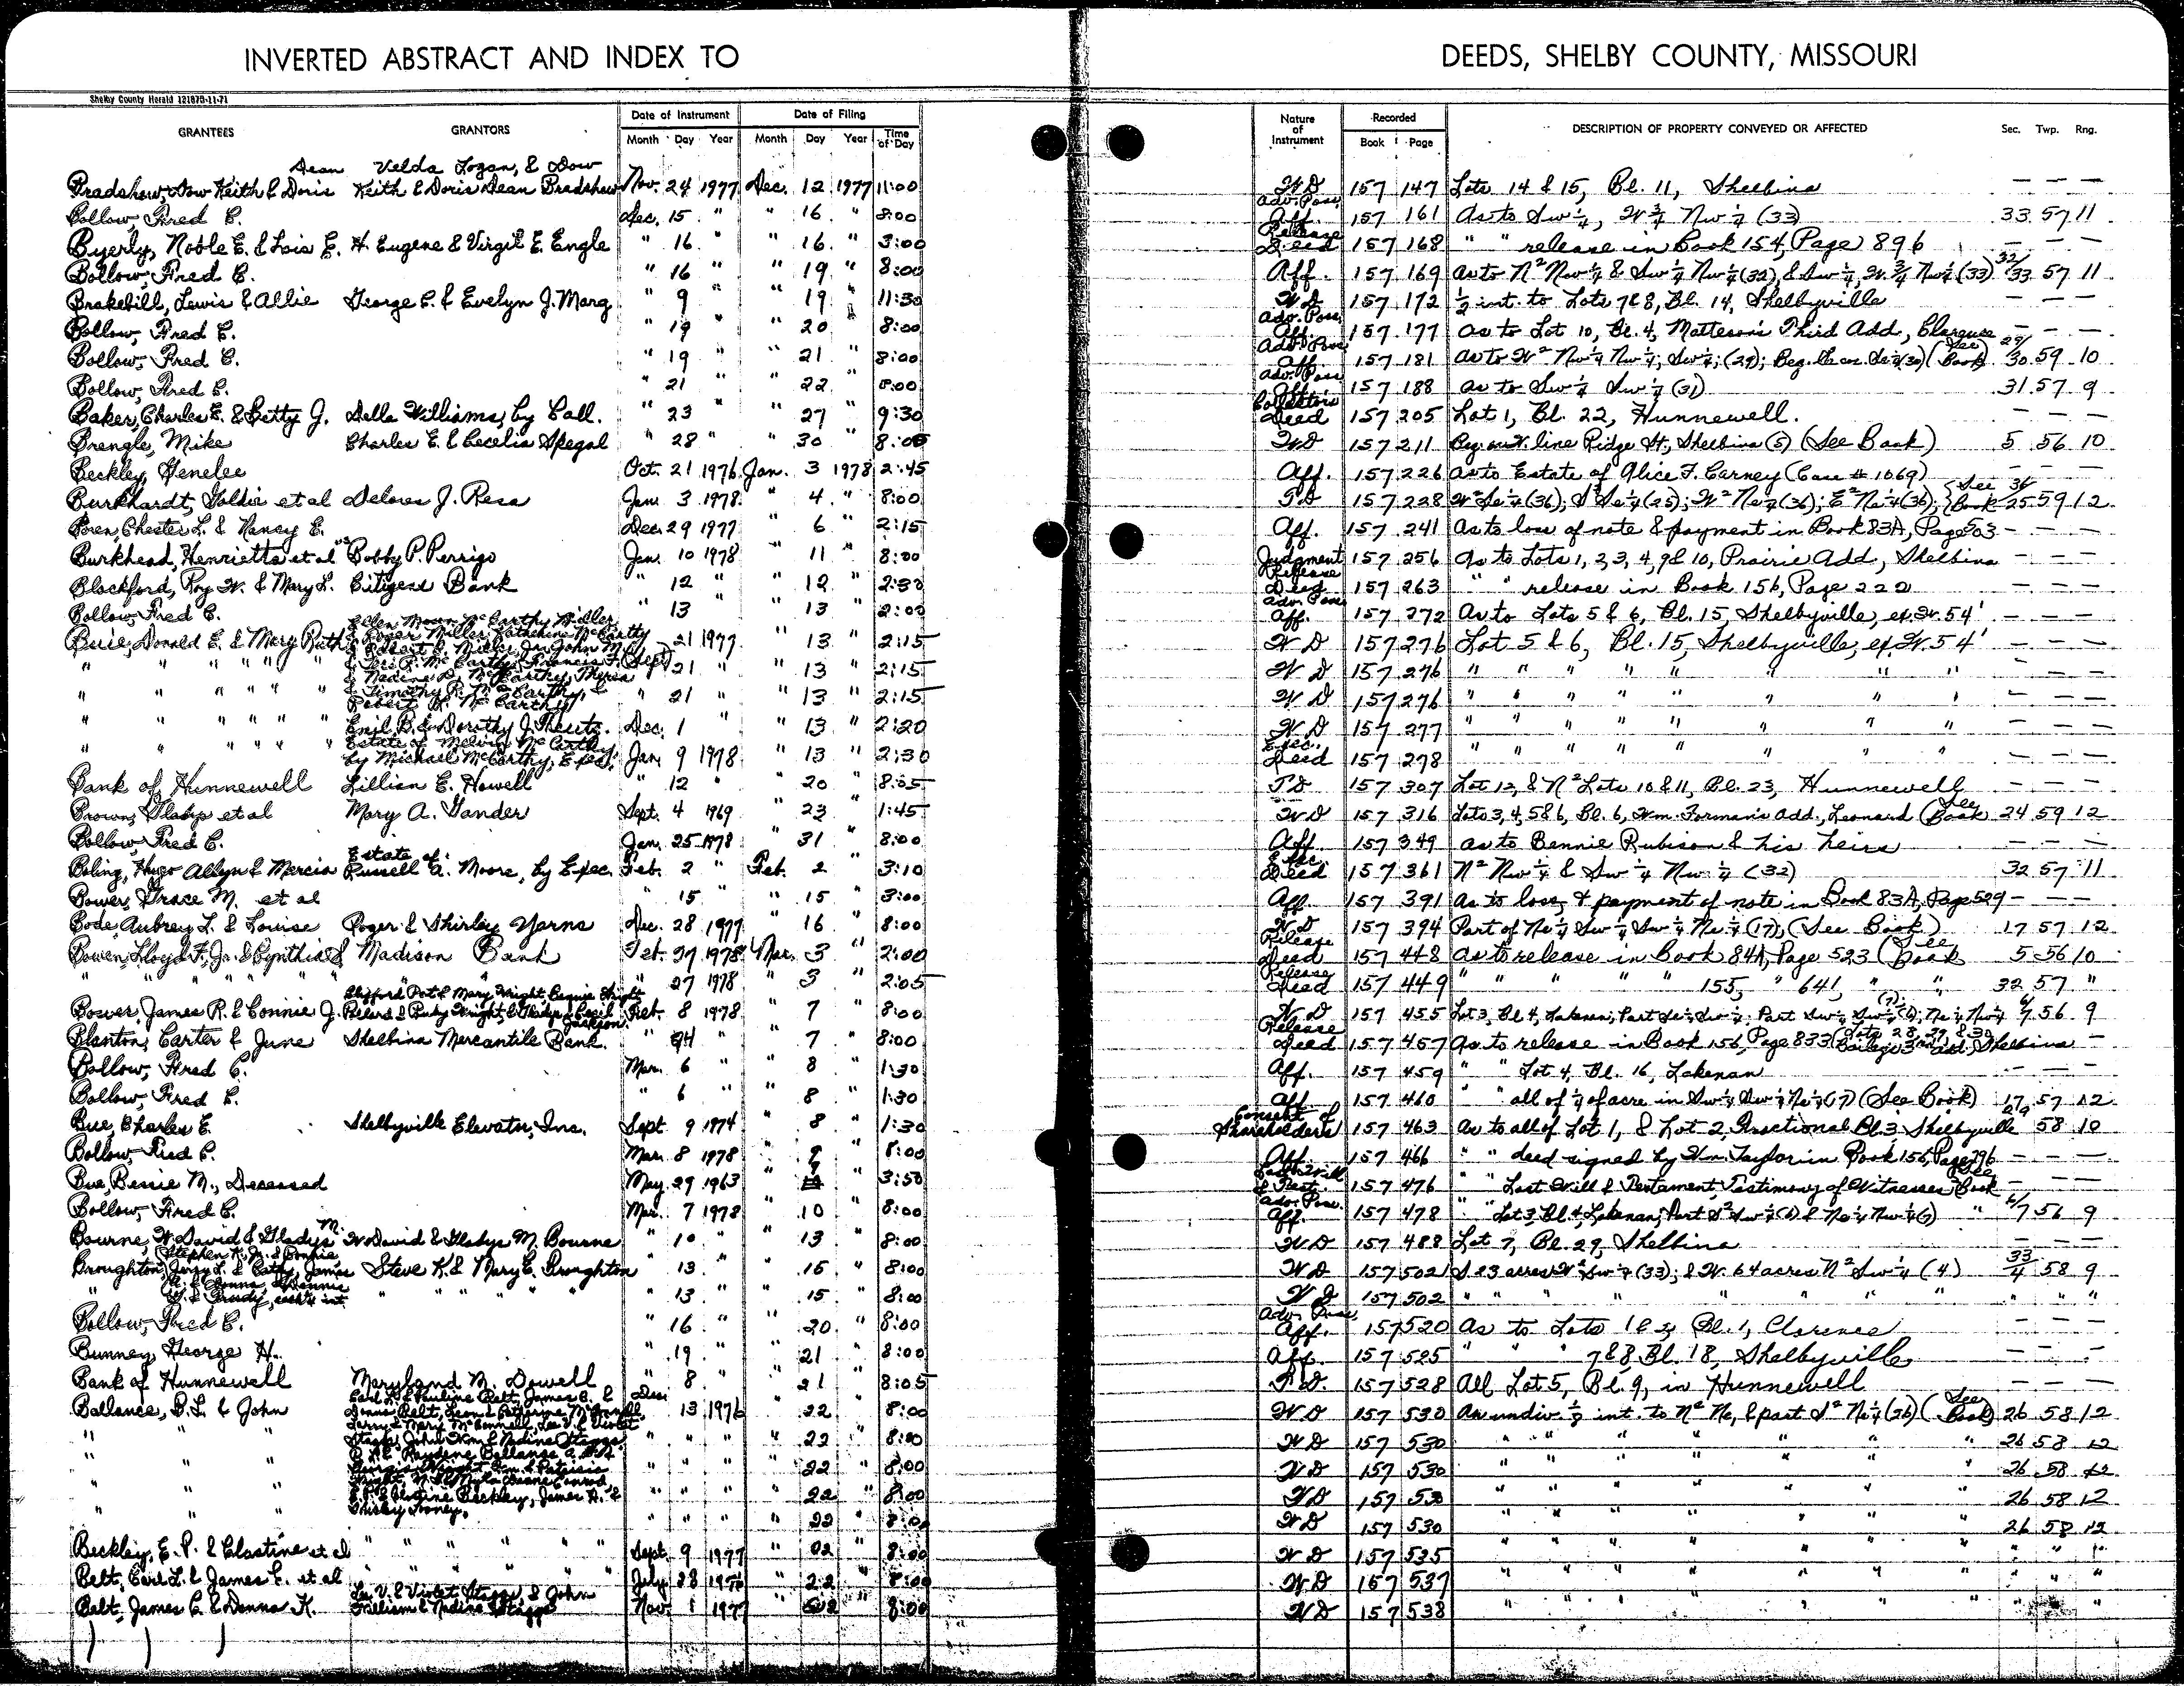 INVERTED ABSTRACT AND INDEX TO DEEDS, SHELBY COUNTY, MISSOURI
Shelby County Herald 121875-11-71
GRANTEES GRANTORS Date of Instrument Date of Filing Nature of Instrument Recorded DESCRIPTION OF PROPERTY CONVEYED OR AFFECTED Sec. Twp. Rng.
Month Day Year Month Day Year Time of Day Book Page
Dean Velda Logan, & Dow
Bradshaw, Dow Keith & Doris Keith & Doris Dean Bradshaw Nov. 24 1977 Dec. 12 1977 11:00 WD 157 147 Lots 14 & 15, Bl. 11, Shelbina — — —
Bollow, Fred C. Dec. 15 " " 16 " 8:00 Adv. Poss. Aff. 157 161 As to Sw ¼, W ¾ Nw ¼ (33) 33 57 11
Byerly, Noble E. & Lois E. H. Eugene & Virgil E. Engle " 16 " " 16 " 3:00 Release Deed 157 168 " " release in Book 154, Page 896 — — —
Bollow, Fred C. " 16 " " 19 " 8:00 Aff. 157 169 As to N² Nw ¼ & Sw ¼ Nw ¼ (32), & Sw ¼, W. ¾ Nw ¼ (33) 32/33 57 11
Brakebill, Lewis & Allie George C. & Evelyn J. Marg " 9 " " 19 " 11:30 WD 157 172 ½ int. to Lots 7 & 8, Bl. 14, Shelbyville — — —
Bollow, Fred C. " 19 " " 20 " 8:00 Adv. Poss. Aff. 157 177 As to Lot 10, Bl. 4, Matteson's Third Add, Clarence — — —
Bollow, Fred C. " 19 " " 21 " 8:00 Adv. Poss. Aff. 157 181 As to W² Nw ¼ Nw ¼; Sw ¼; (29); Beg. (See Book) 29/30 59 10
Bollow, Fred C. " 21 " " 22 " 8:00 Adv. Poss. Aff. 157 188 As to Sw ¼ Sw ¼ (31) 31 57 9
Baker, Charles E. & Betty J. Della Williams, by Coll. " 23 " " 27 " 9:30 Collector's Deed 157 205 Lot 1, Bl. 22, Hunnewell. — — —
Brengle, Mike Charles E. & Cecelia Spegal " 28 " " 30 " 8:00 WD 157 211 Beg. on W. line Ridge St, Shelbina (5) (See Book) 5 56 10
Beckley, Genelee Oct. 21 1976 Jan. 3 1978 2:45 Aff. 157 226 As to Estate of Alice F. Carney (Case # 1069) — — —
Burkhardt, Goldie et al Delores J. Resa Jan. 3 1978 " 4 " 8:00 TD 157 228 W² Se ¼ (36); S² Se ¼ (25); W² Ne ¼ (36); E² Ne ¼ (36); See Book 25 59 12
Chester L. & Nancy E. Dec. 29 1977 " 6 " 2:15 Aff. 157 241 As to loss of note & payment in Book 83A, Page 503 — — —
Burkhead, Henrietta et al vs Bobby P. Perrigo Jan. 10 1978 " 11 " 8:00 Judgment 157 256 As to Lots 1, 2, 3, 4, 9 & 10, Prairie Add, Shelbina — — —
Blackford, Roy W. & Mary L. Citizens Bank " 12 " " 12 " 2:30 Release Deed 157 263 " " release in Book 156, Page 222 — — —
Bollow, Fred C. " 13 " " 13 " 2:00 Adv. Poss. Aff. 157 272 As to Lots 5 & 6, Bl. 15, Shelbyville, ex. W. 54' — — —
Buie, Donald E. & Mary Ruth Ellen Moran McCarthy Miller & Roger Miller, Katherine McCarthy Sept. 21 1977 " 13 " 2:15 WD 157 276 Lot 5 & 6, Bl. 15, Shelbyville, ex. W. 54' — — —
" " " " " " 21 " " 13 " 2:15 WD 157 276 " " " " " " " " — — —
" " " " " & Timothy P. McCarthy, & Robert H. McCarthy " 21 " " 13 " 2:15 WD 157 276 " " " " " " " " — — —
" " " " " Emil B. & Dorothy J. Theuts. Dec. 1 " " 13 " 2:20 WD 157 277 " " " " " " " " — — —
" " " " " Estate of Melvin McCarthy, by Michael McCarthy, Exec. Jan. 9 1978 " 13 " 2:30 Exec. Deed 157 278 " " " " " " " — — —
Bank of Hunnewell Lillian E. Howell " 12 " " 20 " 8:05 TD 157 307 Lot 12, & N² Lots 10 & 11, Bl. 23, Hunnewell — — —
Brown, Gladys et al Mary A. Gander Sept. 4 1969 " 23 " 1:45 WD 157 316 Lots 3, 4, 5 & 6, Bl. 6, Wm. Forman's Add., Leonard (See Book 24 59 12
Bollow, Fred C. Jan. 25 1978 " 31 " 8:00 Aff. 157 349 As to Bennie Rubison & his heirs — — —
Boling, Hugo Allyn & Marcia Estate of Russell A. Moore, by Exec. Feb. 2 " Feb. 2 " 3:10 Exec. Deed 157 361 N² Nw ¼ & Sw ¼ Nw ¼ (32) 32 57 11
Bower, Grace M. et al " 15 " " 15 " 3:00 Aff. 157 391 As to loss & payment of note in Book 83A, Page 529 — — —
Bode, Aubrey L. & Louise Roger & Shirley Yarns Dec. 28 1977 " 16 " 8:00 WD 157 394 Part of Ne ¼ Sw ¼ Sw ¼ Ne ¼ (17), (See Book) 17 57 12
Bowen, Lloyd F., Jr. & Cynthia S. Madison Bank Feb. 27 1978 Mar. 3 " 2:00 Release Deed 157 448 As to release in Book 84A, Page 523 (See Book 5 56 10
" " " " " 27 1978 " 3 " 2:05 Release Deed 157 449 " " " " 155, " 641, " " 32 57 "
Bower, James R. & Connie J. Feb. 8 1978 " 7 " 8:00 WD 157 455 Lot 3, Bl. 4, Lakenan; Part Se ¼ Sw ¼; Part Sw ¼ Sw ¼ (6); Ne ¼ Nw ¼ (7) 6/7 56 9
Blanton, Carter & June Shelbina Mercantile Bank. " 24 " " 7 " 8:00 Release Deed 157 457 As to release in Book 156, Page 833 (Lots 28, 29, & 30, 3rd Add.) Shelbina —
Bollow, Fred C. Mar. 6 " " 8 " 1:30 Aff. 157 459 " " Lot 4, Bl. 16, Lakenan — — —
Bollow, Fred C. " 6 " " 8 " 1:30 Aff. 157 460 " " all of ¼ of acre in Sw ¼ Sw ¼ Ne ¼ (17) (See Book) 17 57 12
Bue, Charles E. Shelbyville Elevator, Inc. Sept. 9 1974 " 8 " 1:30 Consent of Shareholders 157 463 As to all of Lot 1, & Lot 2, Fractional Bl. 3, Shelbyville 58 10
Bollow, Fred C. Mar. 8 1978 " 9 " 8:00 Aff. 157 466 " " deed signed by Wm. Taylor in Book 156, Page 796 — — —
Bue, Bessie M., Deceased May. 29 1963 " 9 " 3:50 Last Will & Test. 157 476 " " Last Will & Testament, Testimony of Witnesses, See Book — — —
Bollow, Fred C. Mar. 7 1978 " 10 " 8:00 Adv. Poss. Aff. 157 478 " " Lot 3, Bl. 4, Lakenan; Part S² Sw ¼ (6) & Ne ¼ Nw ¼ (7) " 6/7 56 9
Bourne, W. David & Gladys M. W. David & Gladys M. Bourne " 10 " " 13 " 8:00 WD 157 488 Lot 7, Bl. 29, Shelbina — — —
Broughton, Stephen K., Jr. & Bonnie Jerry L. & Cathy, James Steve K. & Mary E. Broughton " 13 " " 15 " 8:00 WD 157 502 S 23 acres W² Sw ¼ (33); & W. 64 acres N² Sw ¼ (4) 33/4 58 9
" " " " " " " 13 " " 15 " 8:00 WD 157 502 " " " " " " " " " "
Bollow, Fred C. " 16 " " 20 " 8:00 Adv. Poss. Aff. 157 520 As to Lots 1 & 2, Bl. 1, Clarence — — —
Bunney, George H. " 19 " " 21 " 8:00 Aff. 157 525 " " " 7 & 8, Bl. 18, Shelbyville — — —
Bank of Hunnewell Maryland M. Dowell " 8 " " 21 " 8:05 T.D. 157 528 All Lot 5, Bl. 9, in Hunnewell — — —
Ballance, B.L. & John Earl L. & Pauline Belt, James C. & Donna Belt, Leon & Catherine McConnell, Dec. 13 1976 " 22 " 8:00 WD 157 530 An undiv. int. to N² Ne, & part S² Ne ¼ (26) (See Book) 26 58 12
" " " " " " 22 " 8:00 WD 157 530 " " " " " " 26 58 12
" " " " " " 22 " 8:00 WD 157 530 " " " " " " 26 58 12
" " E.P. & Clastine Beckley, James H. & " " " " 22 " 8:00 WD 157 530 " " " " " " 26 58 12
" " Shirley Toney. " " " " 22 " 8:00 WD 157 530 " " " " " " 26 58 12
Beckley, E.P. & Clastine et al " " " " " Sept. 9 1977 " 22 " 8:00 WD 157 535 " " " " " " " " "
Belt, Earl L. & James C. et al July 28 " 22 " 8:00 WD 157 537 " " " " " " " " "
Belt, James C. & Donna K. Lee V. & Violet Staggs, & John William & Nadine Staggs Nov. 1 1977 " 22 " 8:00 WD 157 538 " " " " " " " "